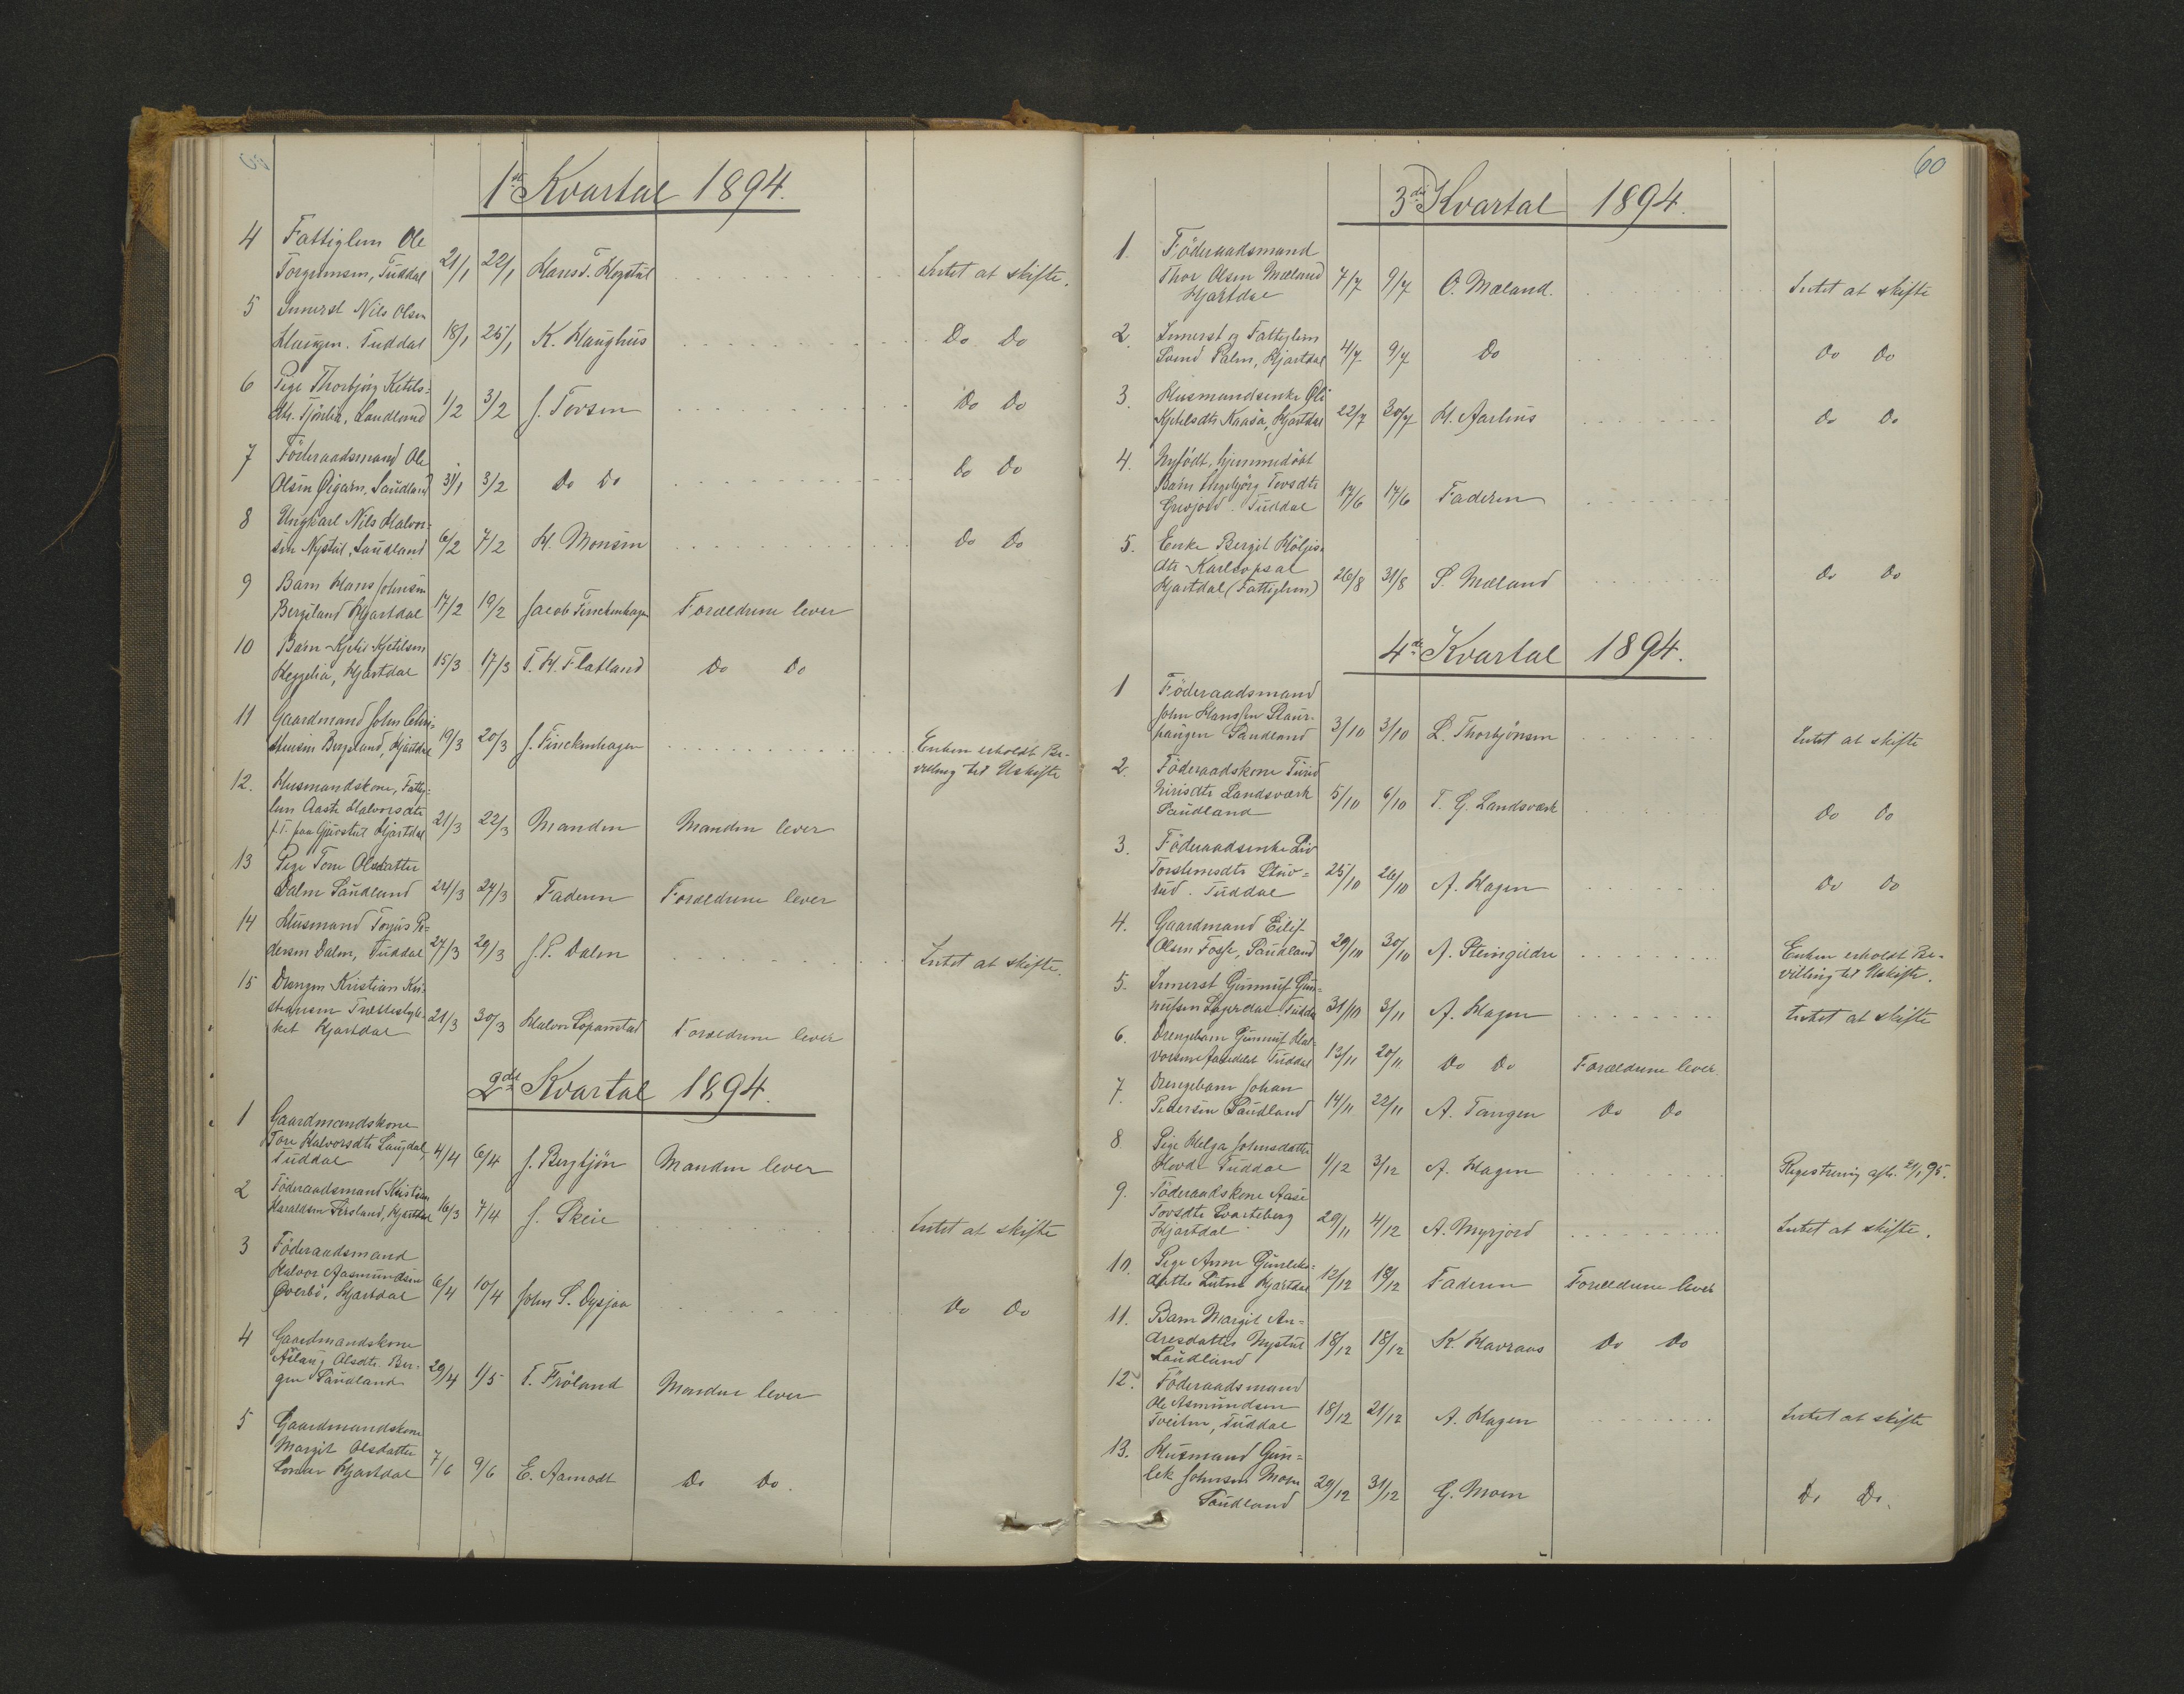 1ste Kvartal 1894.
4 Fattiglem Ole
Torgrimsen, Tuddal 21/1 22/1 Hans T. Høgstul Intet at skifte.
5 Innerst Nils Olsen
Haugen. Tuddal 18/1 25/1 K. Haughus Do Do
6 Pige Thorbjørg Ketils-
dtr. Tjönlia, Saudland 1/2 3/2 J. Tovsen Do Do
7 Föderaadsmand Ole
Olsen Øigarn, Saudland 31/1 3/2 Do Do Do Do
8 Ungkarl Nils Halvor-
sen Nystul, Saudland 6/2 7/2 H. Monsen Do Do
9 Barn Hans Johnsen
Bergsland Hjartdal 17/2 19/2 Jacob Finckenhagen Foreldrene lever
10 Barn Kjetil Kjetilsen
Heggelia, Hjartdal 15/3 17/3 T. H. Flatland Do Do
11 Gaardmand John Chri-
stensen Bergsland, Hjartdal 19/3 20/3 J. Finckenhagen Enken erholdt Be-
villing til Uskifte
12. Husmandskone, Fattig-
lem Aaste Halvorsdtr
f.T. paa Gjuvstul Hjartdal 21/3 22/3 Manden Manden lever
13 Pige Tone Olsdatter
Dalen Saudland 24/3 24/3 Faderen Foreldrene lever
14 Husmand Torjus Pe-
dersen Dalen, Tuddal 27/3 29/3 J. P. Dalen Intet at skifte.
15 Drengen Kristian Kri-
stiansen Hjartdal 21/3 30/3 Halvor Foreldrene lever
2det Kvartal 1894.
1 Gaardmandskone
Tone Halvorsdtr Langdal,
Tuddal 4/4 6/4 J. Bergtjön Manden lever
2 Föderaadsmand Kristian
Haraldsen Hjartdal 16/3 7/4 J. Skeie Intet at skifte
3 Föderaadsmand
Halvor Aasmundsen
Øverbö, Hjartdal 6/4 10/4 John S. Oysjaa Do Do
4 Gaardmandskone
Åslaug Olsdtr. Ber-
gen Saudland 29/4 1/5 T. Fröland Manden lever
5 Gaardmandskone
Margit Olsdatter
Hjartdal 7/6 9/6 E. Aamodt Do Do.
60
3die Kvartal 1894.
1. Föderaadsmand
Thor Olsen Mæland
Hjartdal 7/7 9/7 O. Mæland. Intet at skifte
2 Innerst og Fattiglem
Svend Palm, Hjartdal 4/7 9/7 Do Do Do
3. Husmandsenke Øli
Kjetilsdtr Kaasa, Hjartdal 22/7 30/7 H. Aarhus Do Do
4. Nyfödt, hjemmedöbt
Barn Ingebjörg Tovsdtr
Grivjord. Tuddal 17/6 17/6 Faderen
5. Enke Bergit Höljes-
dtr Karlsopsal
Hjartdal (Fattiglem) 26/8 31/8 S. Mæland Do Do
4de Kvartal 1894.
1 Föderaadsmand
John Hanssen Staur-
haugen Saudland 3/10 3/10 L. Thorbjönsen Intet at skifte
2. Föderaadskone Turid
Nirisdtr Landsværk
Saudland 5/10 6/10 T. G. Landsværk Do Do
3. Föderaadsenke Liv
Torsteinsdtr Stuv-
rud. Tuddal 25/10 26/10 A. Hagen Do Do
4. Gaardmand Eilif
Olsen Fosse, Saudland 29/10 30/10 A. Steingildre Enken erholdt Be-
villing til Uskifte.
5. Innerst Gunnuf Gun-
nufsen Lagerdal Tuddal 31/10 3/11 A. Hagen Intet at skifte
6. Drengebarn Gunnuf Hal-
vorsen Tuddal 13/11 20/11 Do Do Forældrene lever
7. Drengebarn Johan
Pedersen Saudland 14/11 22/11 A. Tangen Do Do
8 Pige Helga Johnsdatter
Hovde Tuddal 1/12 3/12 A. Hagen Registrering afh. 21/1 95.
9. Föderaadskone Aase
Tovsdtr Svarteberg
Hjartdal 29/11 4/12 A. Myrjord Intet at skifte.
10. Pige Anne Gunleiks-
datter Hjartdal 12/12 18/12 Faderen Forældrene lever
11. Barn Margit An-
dresdatter Nystul
Saudland 18/12 18/12 K. Havraas Do Do
12. Föderaadsmand
Ole Asmundsen
Tveiten, Tuddal 18/12 21/12 A. Hagen Intet at skifte
13. Husmand Gun-
lek Johnsen Moen
Saudland 29/12 31/12 G. Moen Do Do.